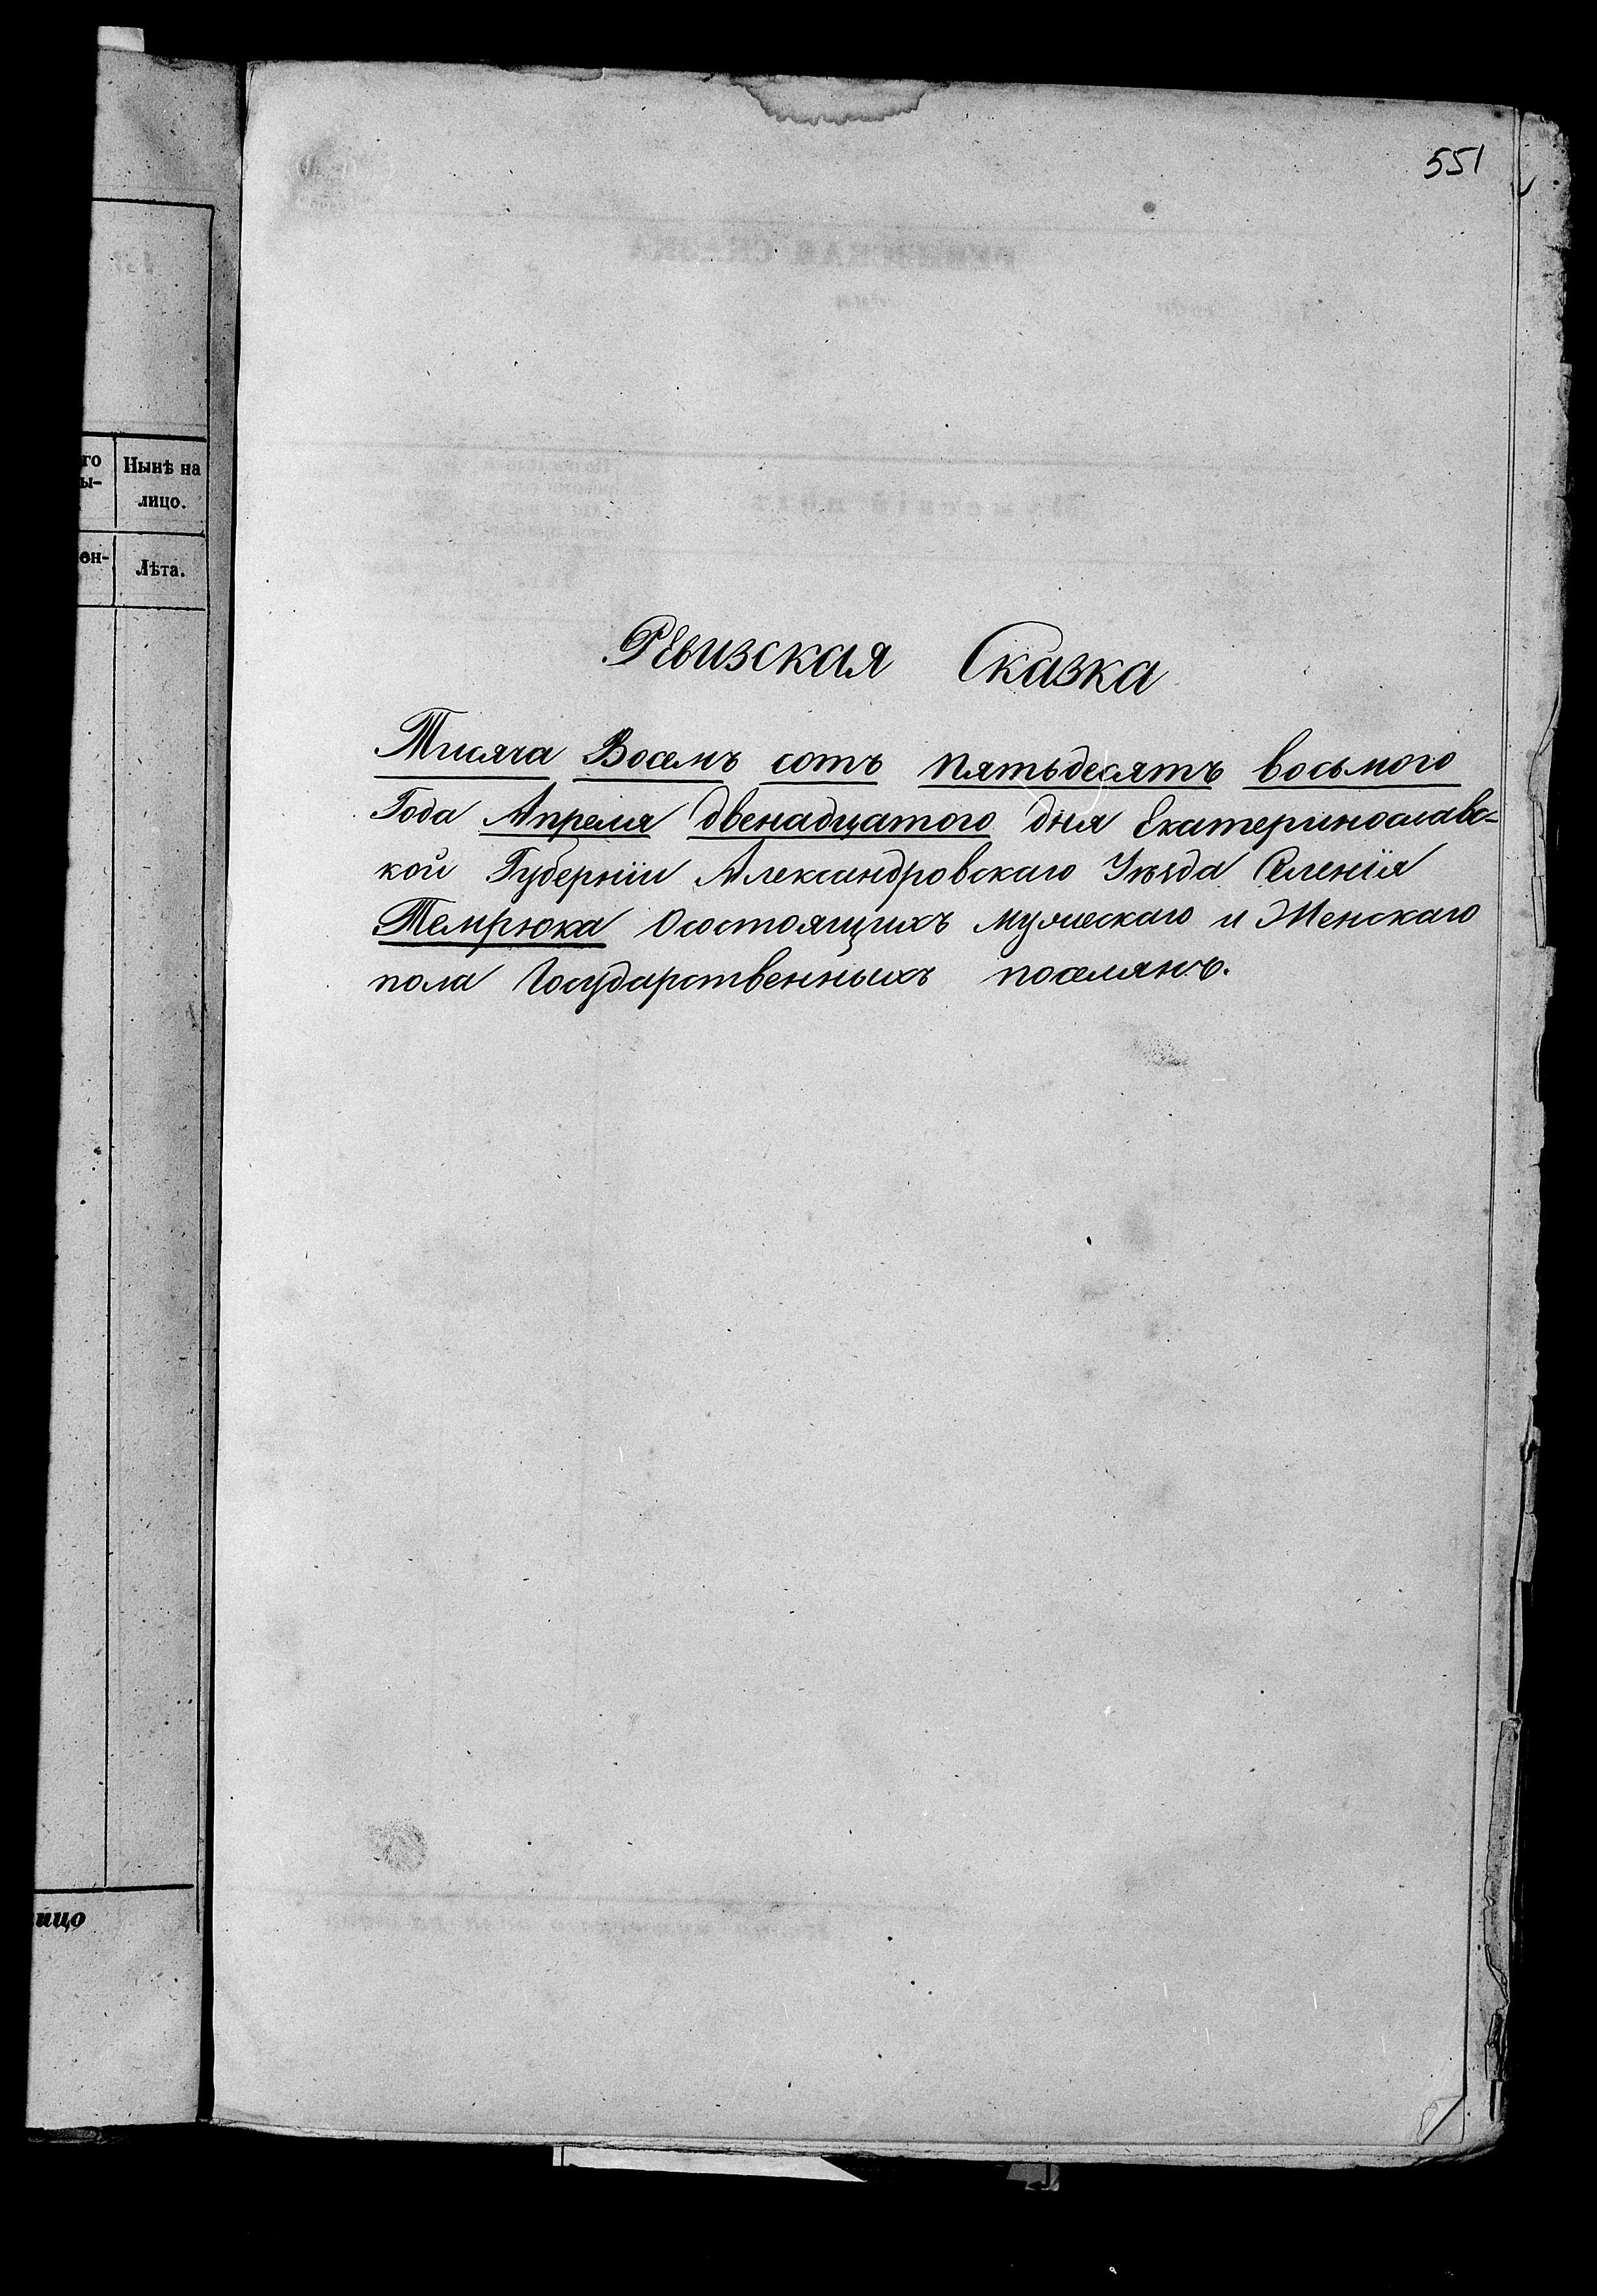 551
го
ы-
Нынѣ на
лицо.
Лѣта.
Ревизская Сказка
Тисяча Восемъ сотъ пятьдесятъ восьмого
Года Апреля двенадцатого дня Екатеринославс-
кой Губерніи Александровскаго Уѣзда Селенія
Темрюка Осостоящихъ мужескаго и Женскаго
пола Государственныхъ поселянъ.
ицо